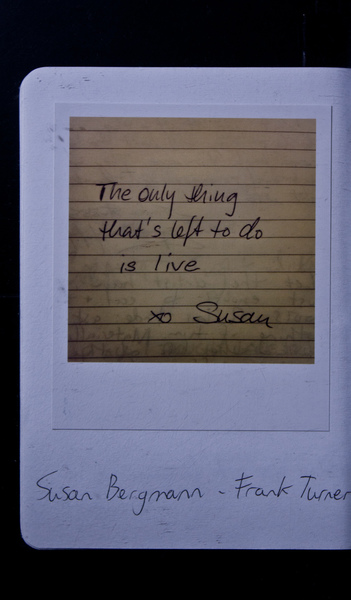 The only thing
that's left to do
is live
xo Susan
Susan Bergmann - Frank Turner